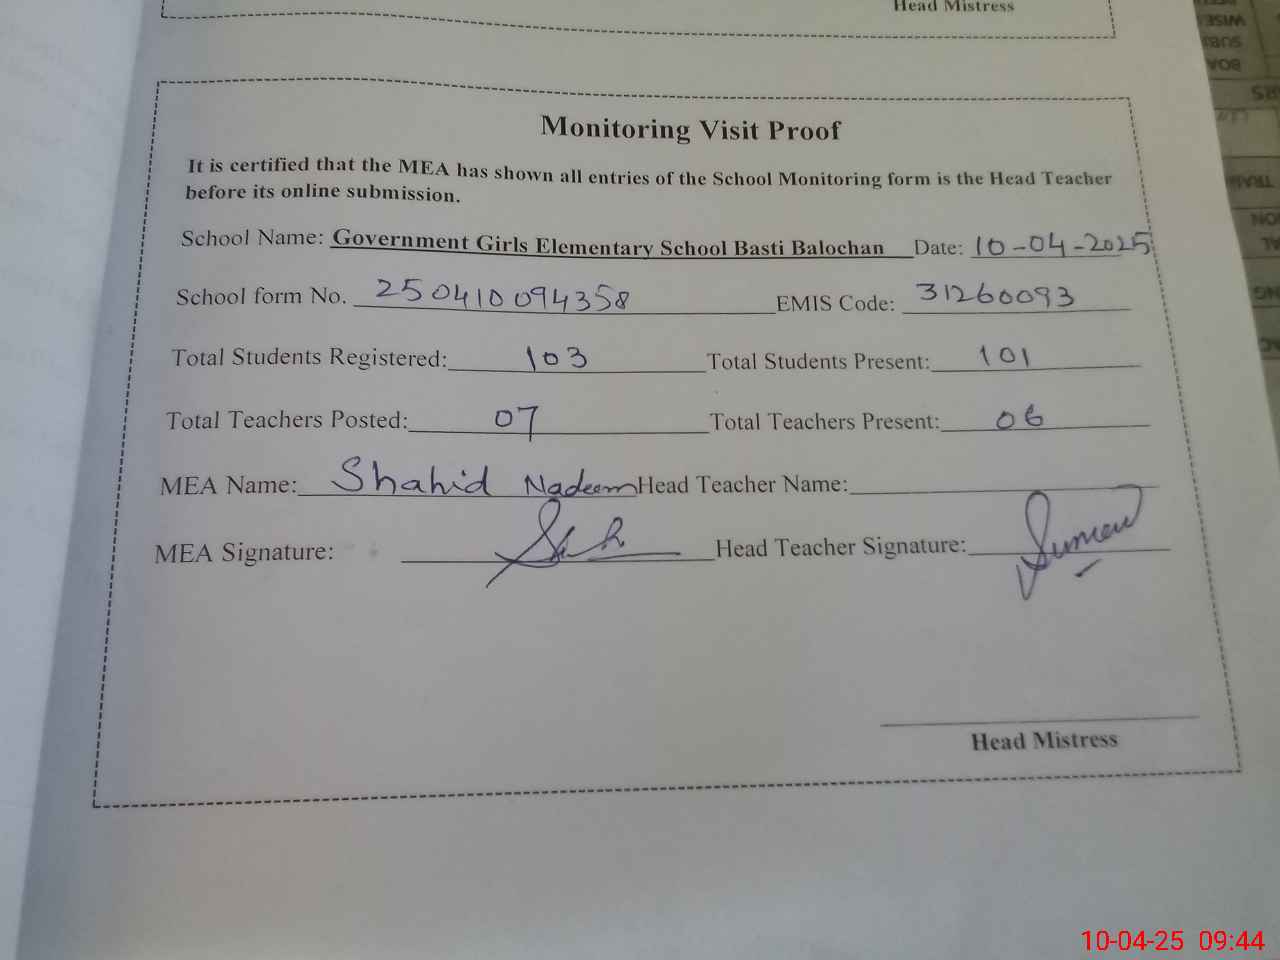 Head Mistress
Monitoring Visit Proof
It is certified that the MEA has shown all entries of the School Monitoring form is the Head Teacher
before its online submission.
School Name: Government Girls Elementary School Basti Balochan Date: 10-04-2025
School form No. 250410094358 EMIS Code: 31260093
Total Students Registered: 103 Total Students Present: 101
Total Teachers Posted: 07 Total Teachers Present: 06
MEA Name: Shahid Nadeem Head Teacher Name:
MEA Signature: Head Teacher Signature:
Head Mistress
WISE
SUBJ
BOA
10-04-25 09:44